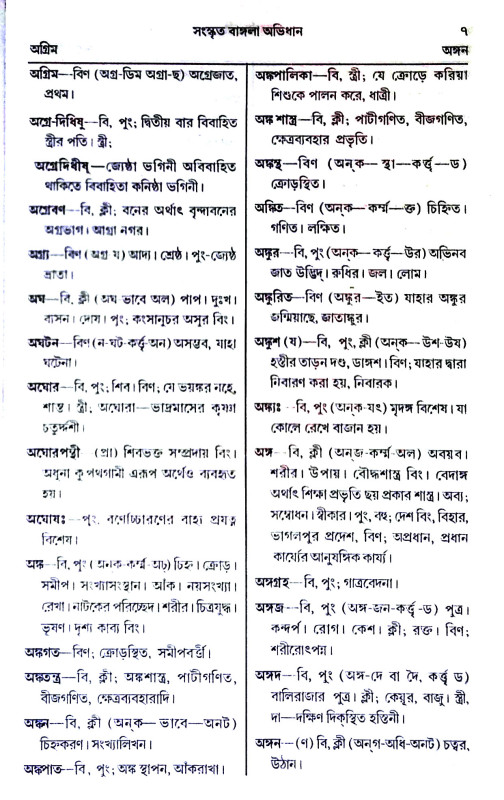 সংস্কৃত বাঙ্গলা অভিধান
৭
অগ্রিম
অঙ্গন
অগ্রিম—বিণ (অগ্র-ডিম অগ্রা-ছ) অগ্রেজাত,
প্রথম।
অগ্রে-দিধিষূ—বি, পুং; দ্বিতীয় বার বিবাহিত
স্ত্রীর পতি। স্ত্রী;
অগ্রেদিধীষূ—জ্যেষ্ঠা ভগিনী অবিবাহিত
থাকিতে বিবাহিতা কনিষ্ঠা ভগিনী।
অগ্রেবণ—বি, ক্লী; বনের অর্থাৎ বৃন্দাবনের
অগ্রভাগ। আগ্রা নগর।
অগ্র্য—বিণ (অগ্র য) আদ্য। শ্রেষ্ঠ। পুং-জ্যেষ্ঠ
ভ্রাতা।
অঘ—বি, ক্লী (অঘ ভাবে অল) পাপ। দুঃখ।
ব্যসন। দোষ। পুং; কংসানুচর অসুর বিং।
অঘটন—বিণ (ন-ঘট-কর্ত্তৃ-অন) অসম্ভব, যাহা
ঘটেনা।
অঘোর—বি, পুং; শিব। বিণ; যে ভয়ঙ্কর নহে,
শান্ত। স্ত্রী; অঘোরা—ভাদ্রমাসের কৃষ্ণা
চতুর্দ্দশী।
অঘোরপন্থী (প্রা) শিবভক্ত সম্প্রদায় বিং।
অধুনা কুপথগামী এরূপ অর্থেও ব্যবহৃত
হয়।
অঘোষঃ—পুং, বর্ণোচ্চারণের বাহ্য প্রযত্ন
বিশেষ।
অঙ্ক—বি, পুং (অনক-কর্ম্ম-অচ্) চিহ্ন। ক্রোড়।
সমীপ। সংখ্যাসংস্থান। আঁক। নয়সংখ্যা।
রেখা। নাটকের পরিচ্ছেদ। শরীর। চিত্রযুদ্ধ।
ভূষণ। দৃশ্য কাব্য বিং।
অঙ্কগত—বিণ; ক্রোড়স্থিত, সমীপবর্ত্তী।
অঙ্কতন্ত্র—বি, ক্লী; অঙ্কশাস্ত্র, পাটীগণিত,
বীজগণিত, ক্ষেত্রব্যবহারাদি।
অঙ্কন—বি, ক্লী (অন্‌ক—ভাবে—অনট)
চিহ্নকরণ। সংখ্যালিখন।
অঙ্কপাত—বি, পুং; অঙ্ক স্থাপন, আঁকরাখা।
অঙ্কপালিকা—বি, স্ত্রী; যে ক্রোড়ে করিয়া
শিশুকে পালন করে, ধাত্রী।
অঙ্ক শাস্ত্র—বি, ক্লী; পাটীগণিত, বীজগণিত,
ক্ষেত্রব্যবহার প্রভৃতি।
অঙ্কস্থ—বিণ (অন্‌ক—স্থা—কর্ত্তৃ—ড)
ক্রোড়স্থিত।
অঙ্কিত—বিণ (অন্‌ক—কর্ম্ম—ক্ত) চিহ্নিত।
গণিত। লক্ষিত।
অঙ্কুর—বি, পুং (অন্‌ক—কর্ত্তৃ—উর) অভিনব
জাত উদ্ভিদ্। রুধির। জল। লোম।
অঙ্কুরিত—বিণ (অঙ্কুর—ইত) যাহার অঙ্কুর
জন্মিয়াছে, জাতাঙ্কুর।
অঙ্কুশ (ষ)—বি, পুং, ক্লী (অন্‌ক—উশ-উষ)
হস্তীর তাড়ন দণ্ড, ডাঙ্গশ। বিণ; যাহার দ্বারা
নিবারণ করা হয়, নিবারক।
অঙ্ক্যঃ—বি, পুং (অন্‌ক-যৎ) মৃদঙ্গ বিশেষ। যা
কোলে রেখে বাজান হয়।
অঙ্গ—বি, ক্লী (অন্‌জ-কর্ম্ম-অল) অবয়ব।
শরীর। উপায়। বৌদ্ধশাস্ত্র বিং। বেদাঙ্গ
অর্থাৎ শিক্ষা প্রভৃতি ছয় প্রকার শাস্ত্র। অব্য;
সম্বোধন। স্বীকার। পুং, বহু; দেশ বিং, বিহার,
ভাগলপুর প্রদেশ, বিণ; অপ্রধান, প্রধান
কার্য্যের আনুষঙ্গিক কার্য্য।
অঙ্গগ্রহ—বি, পুং; গাত্রবেদনা।
অঙ্গজ—বি, পুং (অঙ্গ-জন-কর্ত্তৃ-ড) পুত্র।
কন্দর্প। রোগ। কেশ। ক্লী; রক্ত। বিণ;
শরীরোৎপন্ন।
অঙ্গদ—বি, পুং (অঙ্গ-দে বা দৈ, কর্ত্তৃ ড)
বালিরাজার পুত্র। ক্লী; কেয়ূর, বাজু। স্ত্রী,
দা—দক্ষিণ দিক্‌স্থিত হস্তিনী।
অঙ্গন—(ণ) বি, ক্লী (অন্‌গ-অধি-অনট) চত্বর,
উঠান।